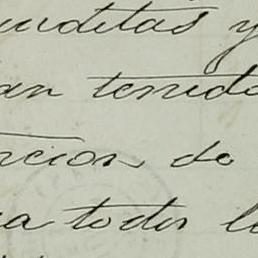 inditas y
an tenido
rcion de
ia todos lo